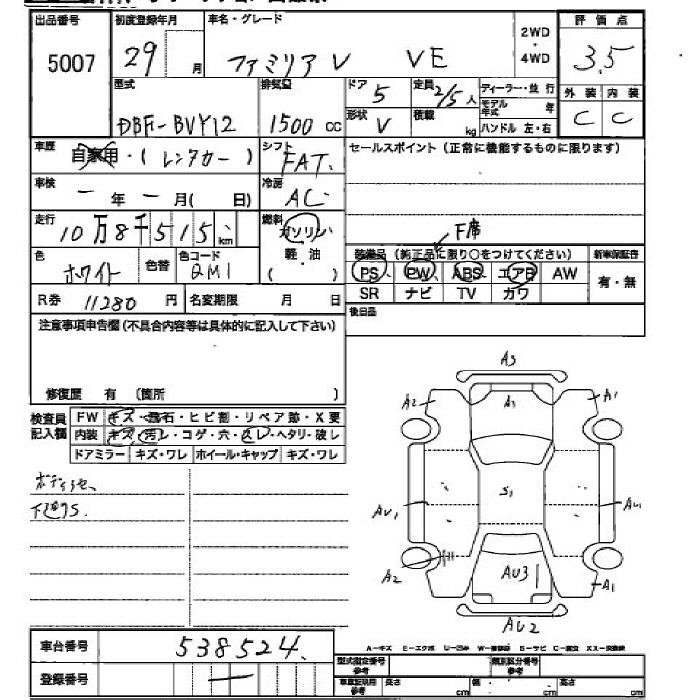 出品番号
5007
初度登録年月
29 月
車名・グレード
ファミリアV VE
2WD
・
4WD
評価点
3.5
外装 内装
C C
型式
DBF-BVY12
排気量
1500 cc
ドア
5
定員
2/5人
ディーラー・並行
モデル年式 年
ハンドル 左・右
形状
V
積載
kg
車歴
自家用・(レンタカー)
シフト
FAT.
セールスポイント(正常に機能するものに限ります)
車検
ー 年 ー 月( 日)
冷房
AC
走行
10万8千515 km
燃料
ガソリン
軽・油
( )
F席
色
ホワイト
色替
色コード
QM1
装備品(純正品に限り○をつけてください)
PS PW ABS エアB AW
SR ナビ TV カワ
新車保証書
有・無
R券 11280 円
名変期限 月 日
後日品
注意事項申告欄(不具合内容等は具体的に記入して下さい)
修復歴 有(箇所 )
検査員記入欄
FW キズ・飛石・ヒビ割・リペア跡・X要
内装 キズ・汚レ・コゲ・穴・スレ・ヘタリ・破レ
ドアミラー キズ・ワレ ホイール・キャップ キズ・ワレ
下廻りS.
A3
A2
A3
A1
AU1
S1
AU1
A2
AU3
A1
AU2
車台番号
538524
登録番号
ー
A―キズ E―エクボ U―凹み
型式指定番号
参考
類別区分番号
参考
車庫証明用
参考
長さ cm 幅 cm 高さ cm